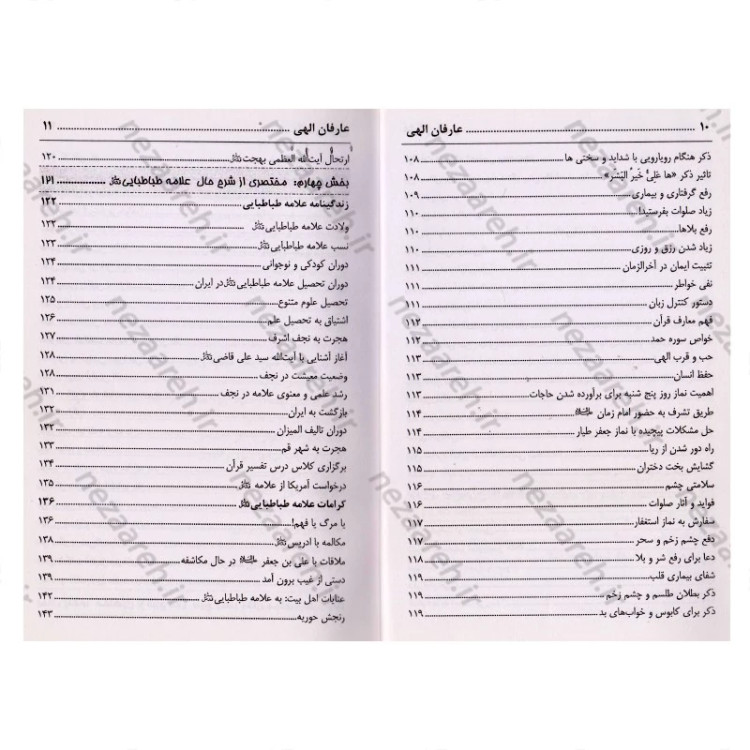 ۱۰ ........ عارفان الهی
ذکر هنگام رویارویی با شداید و سختی ها ........ ۱۰۸
تاثیر ذکر «ها عَلِیٌّ خَیرُ البَشَر» ........ ۱۰۸
رفع گرفتاری و بیماری ........ ۱۰۹
زیاد صلوات بفرستید! ........ ۱۱۰
رفع بلاها ........ ۱۱۰
زیاد شدن رزق و روزی ........ ۱۱۰
تثبیت ایمان در آخرالزمان ........ ۱۱۱
نفی خواطر ........ ۱۱۱
دستور کنترل زبان ........ ۱۱۱
فهم معارف قرآن ........ ۱۱۲
خواص سوره حمد ........ ۱۱۲
حب و قرب الهی ........ ۱۱۳
حفظ انسان ........ ۱۱۳
اهمیت نماز روز پنج شنبه برای برآورده شدن حاجات ........ ۱۱۳
طریق تشرف به حضور امام زمان ........ ۱۱۴
حل مشکلات پیچیده با نماز جعفر طیار ........ ۱۱۴
راه دور شدن از ریا ........ ۱۱۵
گشایش بخت دختران ........ ۱۱۵
سلامتی چشم ........ ۱۱۶
فواید و آثار صلوات ........ ۱۱۶
سفارش به نماز استغفار ........ ۱۱۷
دفع چشم زخم و سحر ........ ۱۱۷
دعا برای رفع شر و بلا ........ ۱۱۸
شفای بیماری قلب ........ ۱۱۹
ذکر بطلان طلسم و چشم زخم ........ ۱۱۹
ذکر برای کابوس و خواب‌های بد ........ ۱۱۹
عارفان الهی ........ ۱۱
ارتحال آیت‌الله العظمی بهجت ........ ۱۲۰
بخش چهارم: مختصری از شرح حال علامه طباطبایی ........ ۱۲۱
زندگینامه علامه طباطبایی ........ ۱۲۲
ولادت علامه طباطبایی ........ ۱۲۲
نسب علامه طباطبایی ........ ۱۲۳
دوران کودکی و نوجوانی ........ ۱۲۴
دوران تحصیل علامه طباطبایی در ایران ........ ۱۲۴
تحصیل علوم متنوع ........ ۱۲۵
اشتیاق به تحصیل علم ........ ۱۲۶
هجرت به نجف اشرف ........ ۱۲۷
آغاز آشنایی با آیت‌الله سید علی قاضی ........ ۱۲۸
وضعیت معیشت در نجف ........ ۱۲۸
رشد علمی و معنوی علامه در نجف ........ ۱۳۱
بازگشت به ایران ........ ۱۳۲
دوران تالیف المیزان ........ ۱۳۲
هجرت به شهر قم ........ ۱۳۳
برگزاری کلاس درس تفسیر قرآن ........ ۱۳۴
درخواست آمریکا از علامه ........ ۱۳۵
کرامات علامه طباطبایی ........ ۱۳۶
یا مرگ یا فهم! ........ ۱۳۶
مکالمه با ادریس ........ ۱۳۸
ملاقات با علی بن جعفر در حال مکاشفه ........ ۱۳۹
دستی از غیب برون آمد ........ ۱۳۹
عنایات اهل بیت: به علامه طباطبایی ........ ۱۴۲
رنجش حوریه ........ ۱۴۳
nezaareh.ir